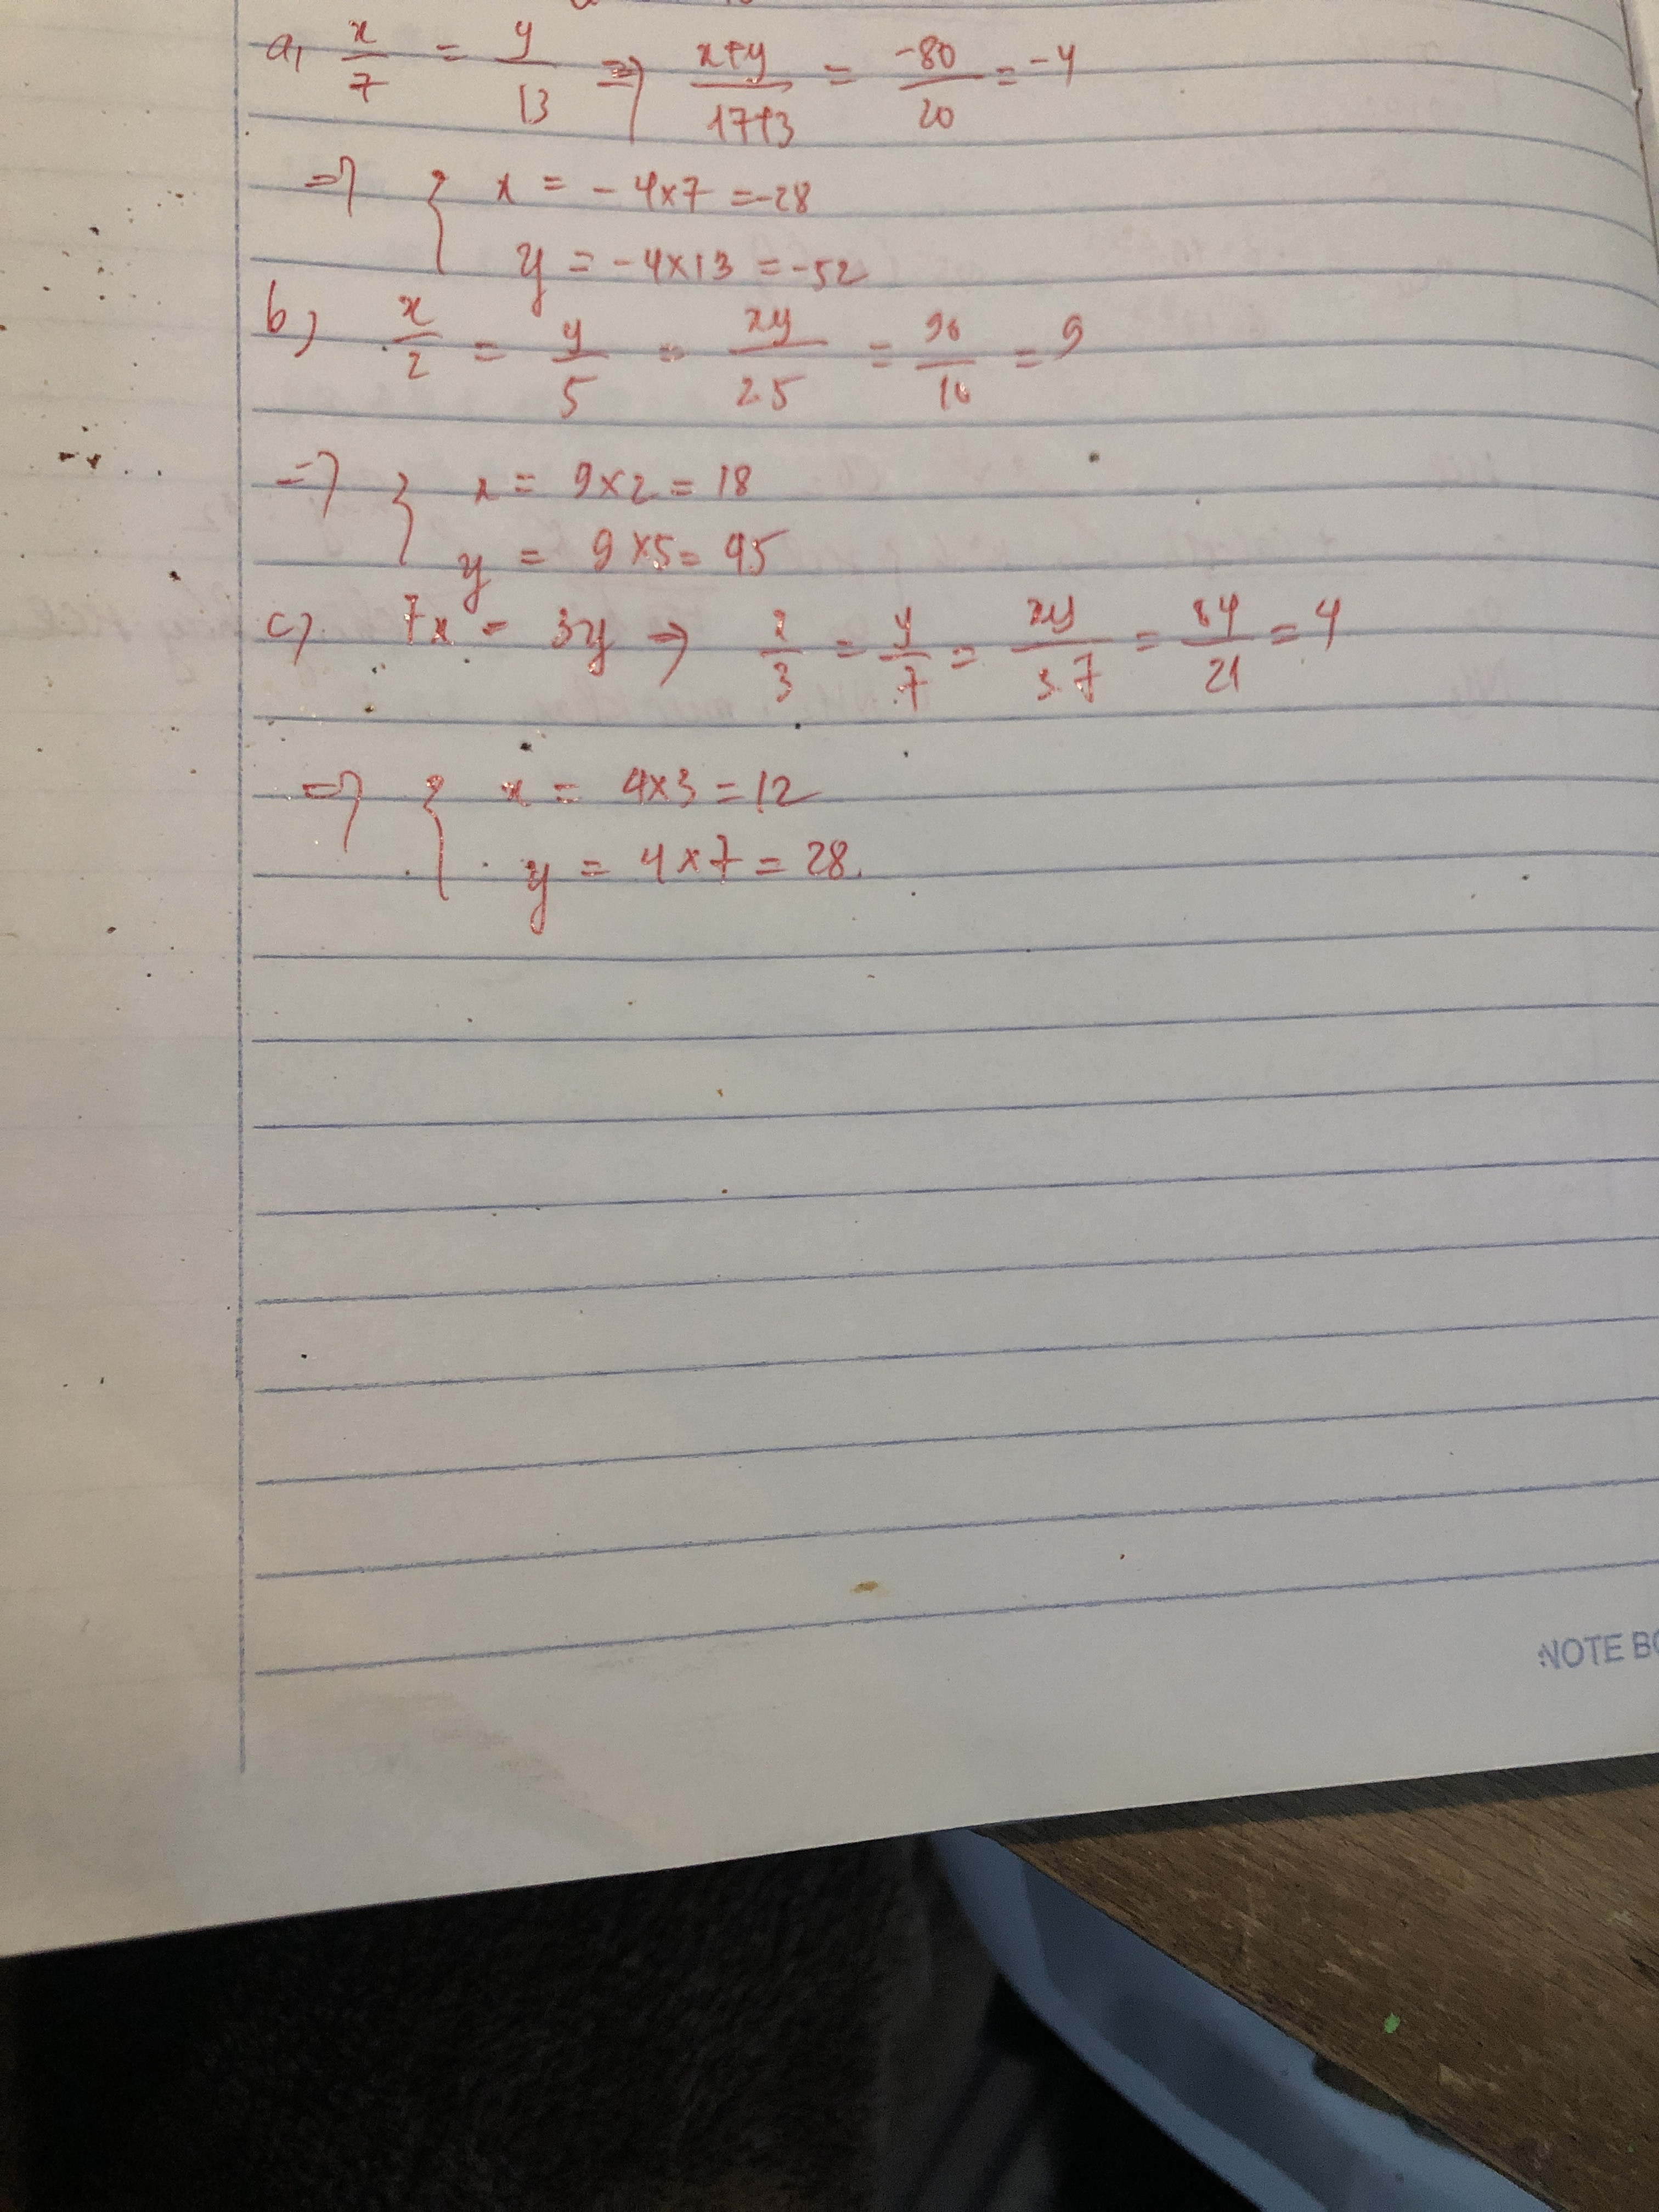 a, x/7 = y/13 => x+y/17+3 = -80/20 = -4
=> { x = -4x7 = -28
y = -4x13 = -52
b, x/2 = y/5 = xy/2.5 = 90/10 = 9
=> { x = 9x2 = 18
y = 9x5 = 45
c, 7x = 3y => x/3 = y/7 = xy/3.7 = 84/21 = 4
=> { x = 4x3 = 12
y = 4x7 = 28.
NOTE BO